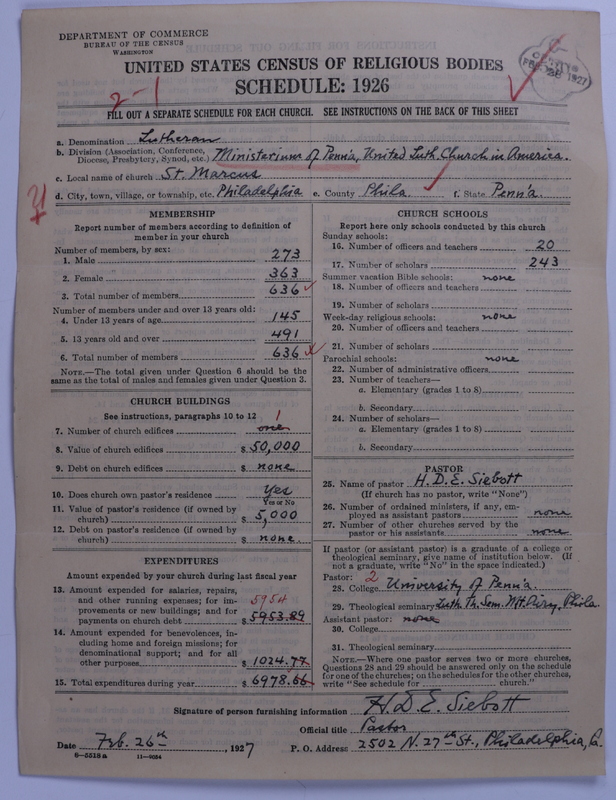 DEPARTMENT OF COMMERCE
BUREAU OF THE CENSUS
WASHINGTON
UNITED STATES CENSUS OF RELIGIOUS BODIES
SCHEDULE: 1926
2-1
FILL OUT A SEPARATE SCHEDULE FOR EACH CHURCH. SEE INSTRUCTIONS ON THE BACK OF THIS SHEET
a. Denomination Lutheran
b. Division (Association, Conference, Diocese, Presbytery, Synod, etc.) Ministerium of Penn'a, United Luth. Church in America.
c. Local name of church St. Marcus
d. City, town, village, or township, etc. Philadelphia e. County Phila f. State Penn'a
MEMBERSHIP
Report number of members according to definition of
member in your church
Number of members, by sex:
1. Male 273
2. Female 363
3. Total number of members 636
Number of members under and over 13 years old:
4. Under 13 years of age 145
5. 13 years old and over 491
6. Total number of members 636
NOTE.—The total given under Question 6 should be
same as the total of males and females given under Question 3.
CHURCH BUILDINGS
See instructions, paragraphs 10 to 12
1
7. Number of church edifices one
8. Value of church edifices $ 50,000
9. Debt on church edifices $ none
10. Does church own pastor's residence Yes
Yes or No
11. Value of pastor's residence (if owned by
church) $ 5,000
12. Debt on pastor's residence (if owned by
church) $ none.
EXPENDITURES
Amount expended by your church during last fiscal year
13. Amount expended for salaries, repairs,
and other running expenses; for im- 5954
provements or new buildings; and for
payments on church debt $ 5953.89
14. Amount expended for benevolences, in-
cluding home and foreign missions; for
denominational support; and for all
other purposes $ 1024.77
15. Total expenditures during year $ 6978.66
CHURCH SCHOOLS
Report here only schools conducted by this church
Sunday schools:
16. Number of officers and teachers 20
17. Number of scholars 243
Summer vacation Bible schools: none
18. Number of officers and teachers
19. Number of scholars
Week-day religious schools: none
20. Number of officers and teachers
21. Number of scholars
Parochial schools: none
22. Number of administrative officers
23. Number of teachers—
a. Elementary (grades 1 to 8)
b. Secondary
24. Number of scholars—
a. Elementary (grades 1 to 8)
b. Secondary
PASTOR
25. Name of pastor H. D. E. Siebott
(If church has no pastor, write "None")
26. Number of ordained ministers, if any, em-
ployed as assistant pastors none
27. Number of other churches served by the
pastor or his assistants none
If pastor (or assistant pastor) is a graduate of a college or
theological seminary, give name of institution below. (If
not a graduate, write "No" in the space indicated.)
Pastor: 2
28. College University of Penn'a.
29. Theological seminary Luth. Th. Sem. Mt. Airy, Phila.
Assistant pastor: none
30. College
31. Theological seminary
NOTE.—Where one pastor serves two or more churches,
Questions 28 and 29 should be answered only on the schedule
for one of the churches; on the schedules for the other churches,
write "See schedule for church."
Signature of person furnishing information H. D. E. Siebott
Official title Pastor
Date Feb. 26th, 1927 P. O. Address 2502 N. 27th St., Philadelphia, Pa.
6-5518a 11-8654